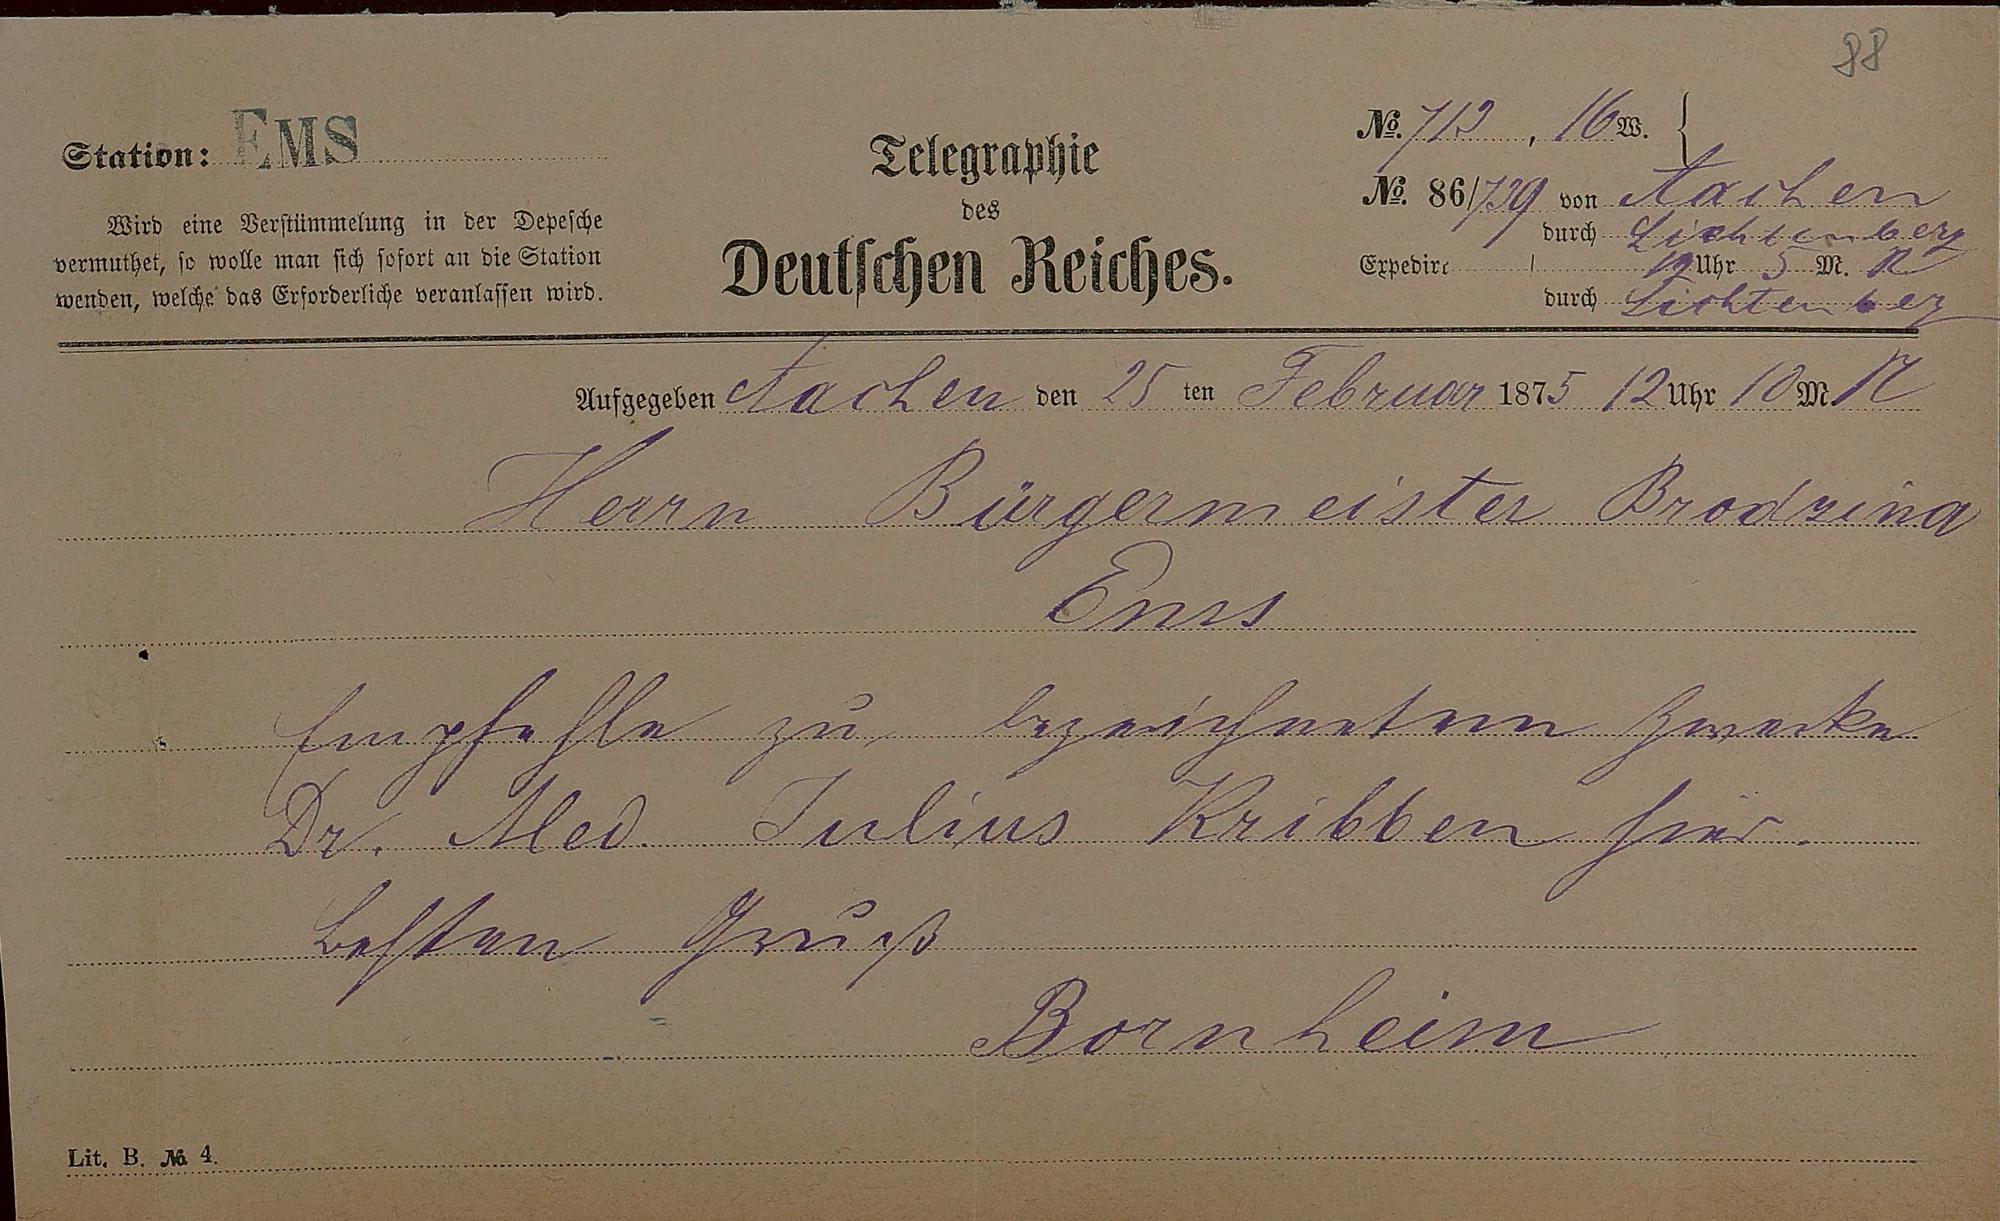 88
Station: EMS
Wird eine Verstümmelung in der Depesche
vermuthet, so wolle man sich sofort an die Station
wenden, welche das Erforderliche veranlassen wird.
Telegraphie
des
Deutschen Reiches.
No. 713, 16 W.
No. 86/739 von Aachen
durch Lichtenberg
Expedirt Uhr 5 M. N
durch Lichtenberg
Aufgegeben Aachen den 25 ten Februar 1875 12 Uhr 10 M. N
Herrn Bürgermeister Brodzina
Ems
Empfehle zu bezeichnetem Zwecke
Dr. Med. Julius Kribben hier.
besten Gruß
Bornheim
Lit. B. No. 4.